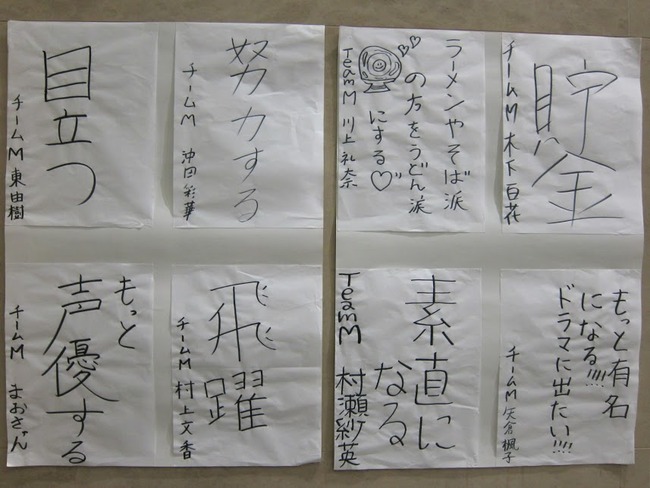 貯金
チームM 木下百花
ラーメンやそば派
の方をうどん派
にする♡
TeamM 川上礼奈
努力する
チームM 沖田彩華
目立つ
チームM 東由樹
もっと有名
になる!!!!
ドラマに出たい!!!!
チームM 矢倉楓子
素直に
なる
TeamM 村瀬紗英
飛躍
チームM 村上文香
もっと
声優する
チームM まおきゅん